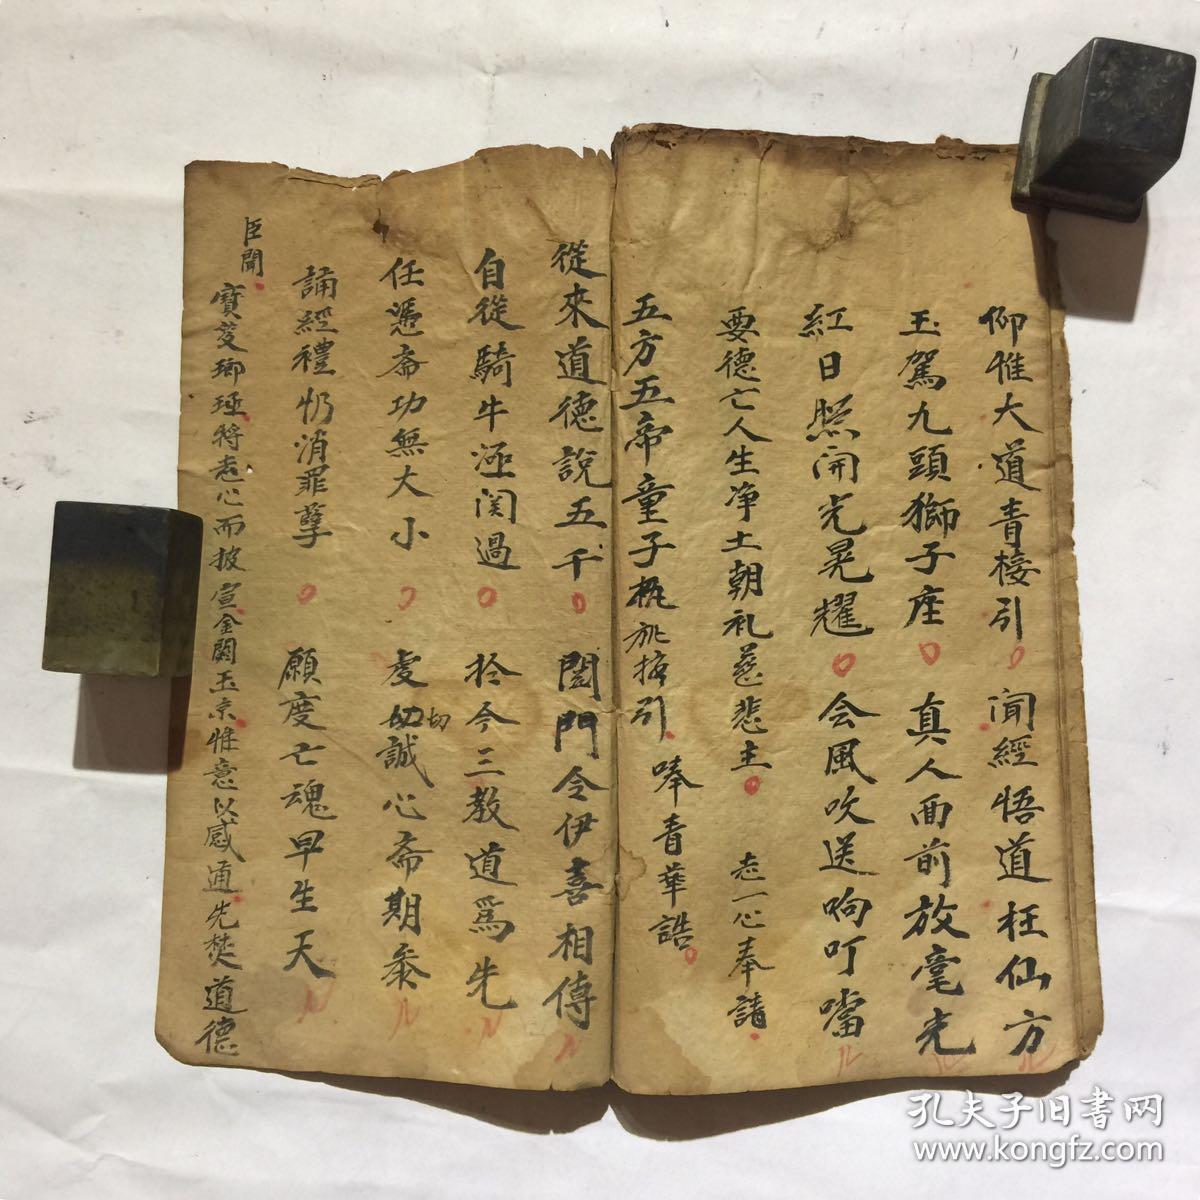 仰惟大道青接引 闻經悟道枉仙方
玉駕九頭獅子座 真人面前放毫光
紅日照開光晃耀 会風吹送响叮噹
要德亡人生净土朝礼慈悲主 志一心奉請
五方五帝童子執旂接引 奉青華誥
從來道德說五千 関門令伊喜相傳
自從騎牛極関過 於今三教道爲先
任憑斋功無大小 虔切誠心斋期叅
誦經禮忏消罪孽 願度亡魂早生天
臣聞
寶笈瑯琅将志心而披宣金闕玉京惟意以感通先焚道德
孔夫子旧書网
www.kongfz.com